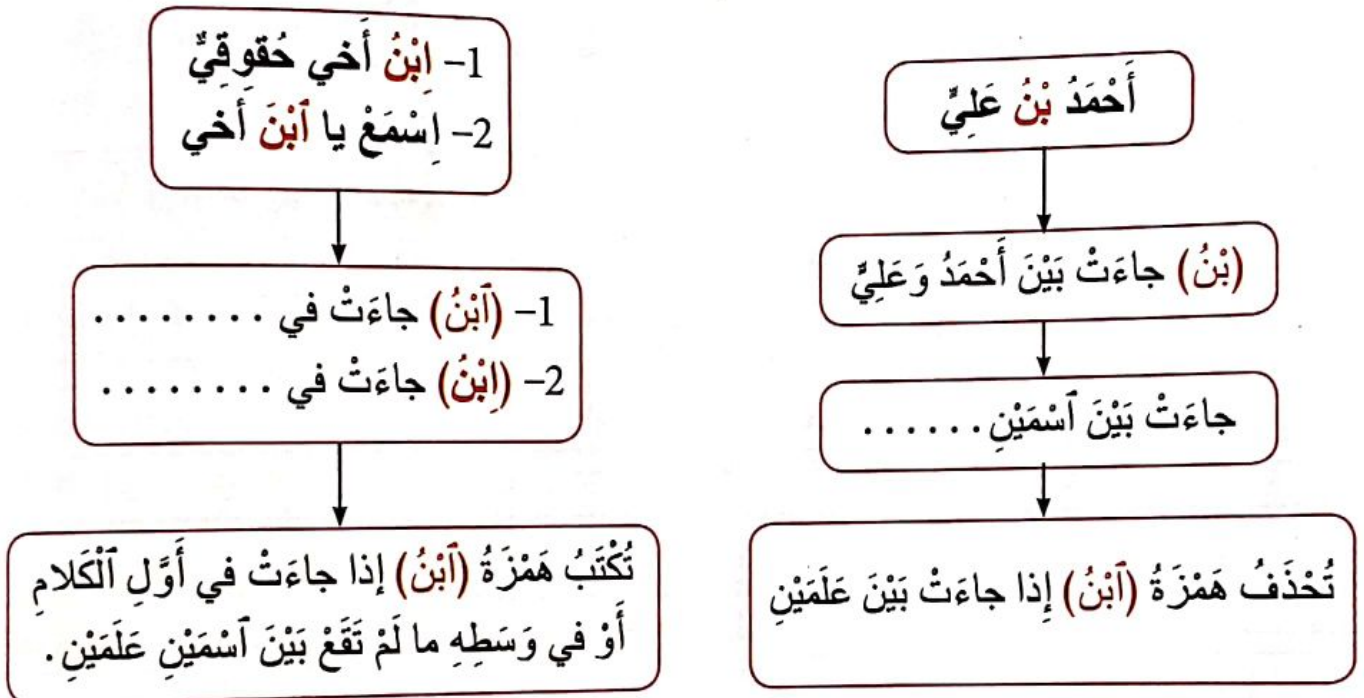 أَحْمَدُ بْنُ عَلِيٍّ
(بْنُ) جاءَتْ بَيْنَ أَحْمَدُ وَعَلِيٍّ
جاءَتْ بَيْنَ ٱسْمَيْنِ......
تُحْذَفُ هَمْزَةُ (ٱبْنُ) إِذا جاءَتْ بَيْنَ عَلَمَيْنِ
1- اِبْنُ أَخي حُقوقِيٌّ
2- اِسْمَعْ يا ٱبْنَ أَخي
1- (ٱبْنُ) جاءَتْ في ........
2- (اِبْنُ) جاءَتْ في ........
تُكْتَبُ هَمْزَةُ (ٱبْنُ) إذا جاءَتْ في أَوَّلِ ٱلْكَلامِ
أَوْ في وَسَطِهِ ما لَمْ تَقَعْ بَيْنَ ٱسْمَيْنِ عَلَمَيْنِ.